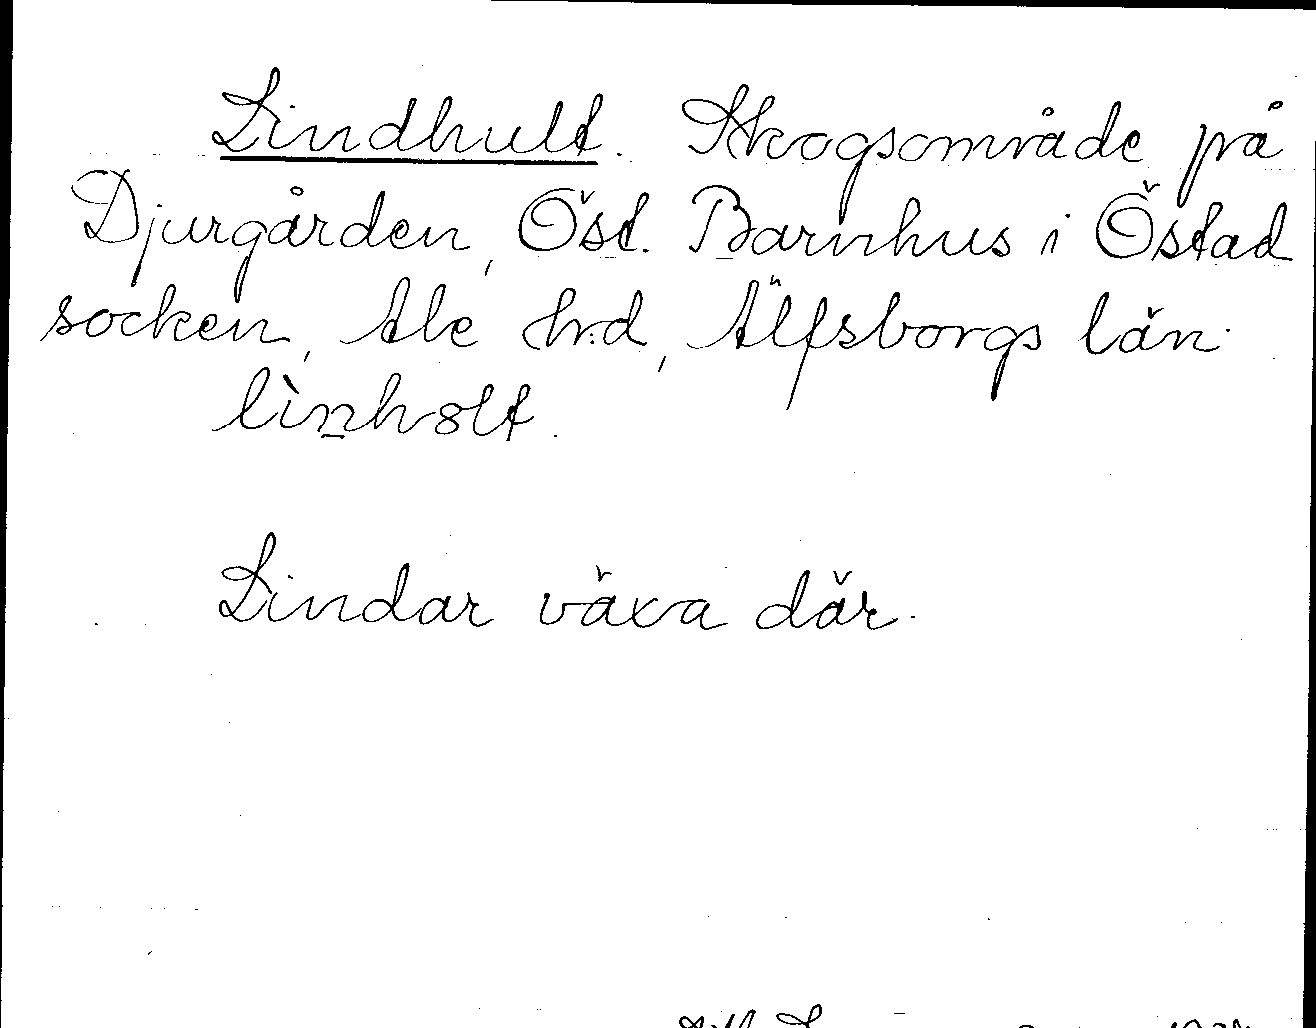 Lindhult. Skogsområde på
Djurgården, Öst. Barnhus i Östad
socken, Ale hrd, Älfsborgs län.
lình8lt.
Lindar växa där.